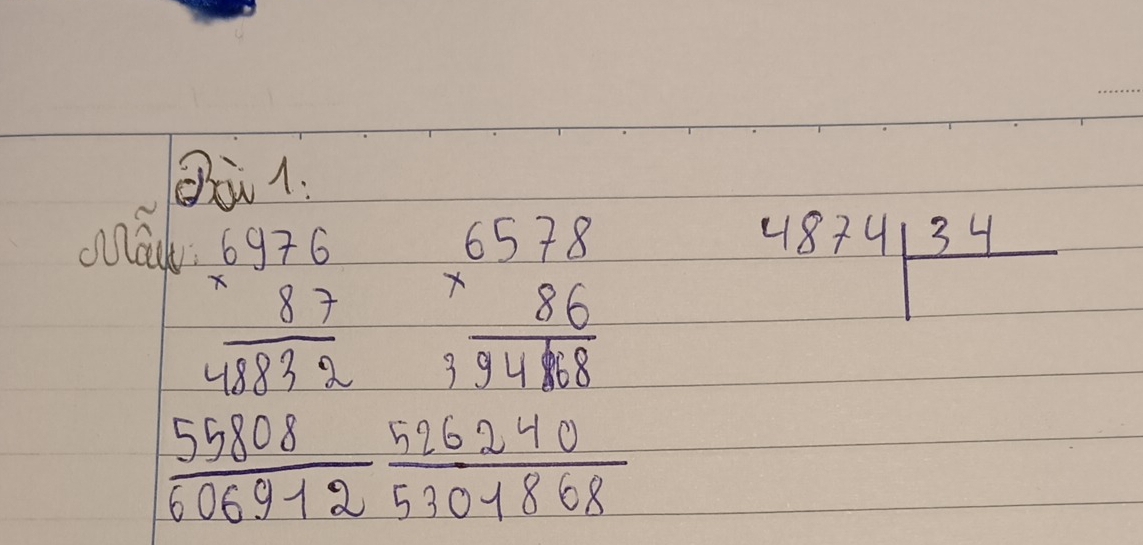 Bài 1:
Mẫu: 6976 6578 4874 34
x x
87 86
48832 394 68
55808 526240
606912 5301868